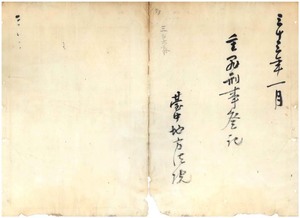 三十三年一月
重罪刑事登記
臺中地方法院